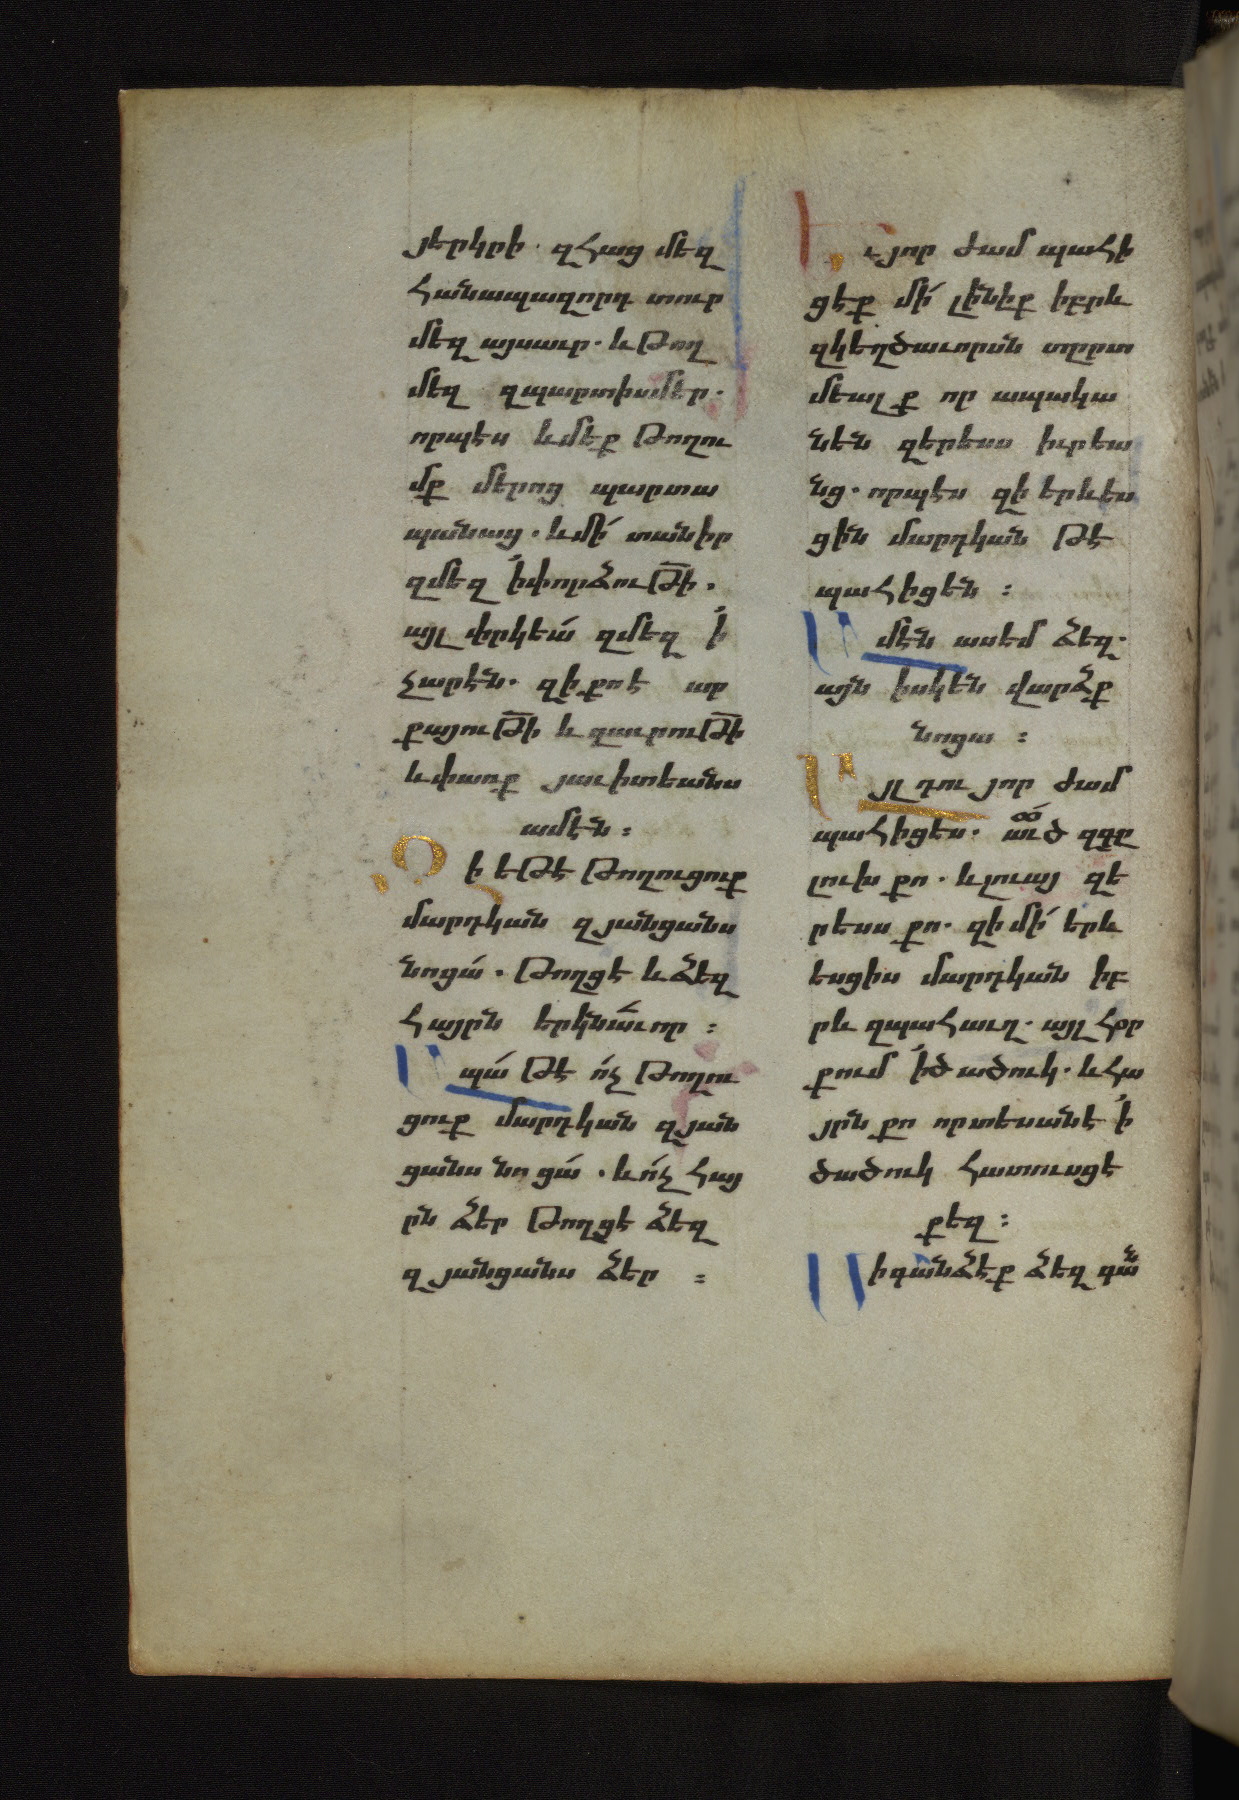 յերկրի. զհաց մեզ
հանապազորդ տուր
մեզ այսաւր. և թող
մեզ զպարտիսմեր.
որպէս և մեք թողու
մք մերոց պարտա
պանաց. և մի՛ տանիր
զմեզ ՛ի փորձութի̅.
այլ փրկեա՛ զմեզ ՛ի
չարէն. զի քո է ար
քայութի̅ և զաւրութի̅
և փառք յաւիտեանս
ամէն :
Զի եթէ թողուցուք
մարդկան զյանցանս
նոցա՛. թողցէ և ձեզ
հայրն երկնաւոր :
Ապա՛ թէ ո՛չ թողու
ցուք մարդկան զյան
ցանս նոցա՛. և ո՛չ հայ
րն ձեր թողցէ ձեզ
զյանցանս ձեր :
Եւ յոր ժամ պահի
ցէք մի՛ լինիք իբրև
զկեղծաւորսն տըրտ
մեալք որ ապակա
նեն զերեսս իւրեա
նց. որպէս զի երևես
ցին մարդկան թէ
պահիցեն :
Ամէն ասեմ ձեզ.
այն իսկ են վարձք
նոցա :
Այլ դու յոր ժամ
պահիցես. աւծ զգը
լուխ քո. և լուայ զե
րեսս քո. զի մի՛ երև
եսցիս մարդկան իբ
րև զպահաւղ. այլ հօր
քում ՛ի ծածուկ. և հա
յրն քո որ տեսանէ ՛ի
ծածուկ հատուսցէ
քեզ :
Մի գանձէք ձեզ գան